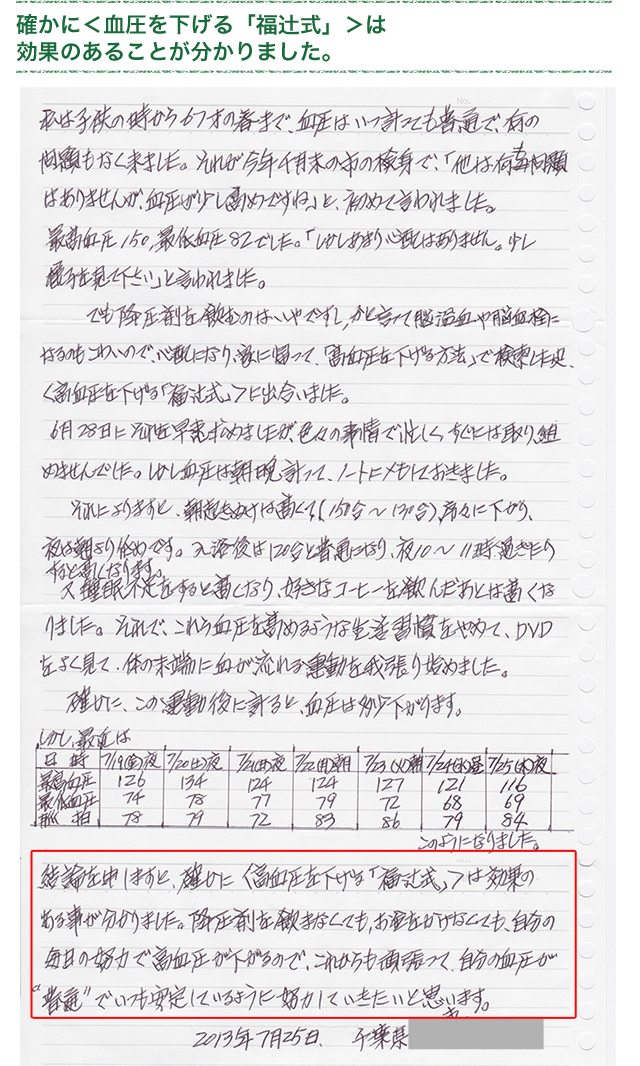 確かに＜血圧を下げる「福辻式」＞は
効果のあることが分かりました。
私は子供の時から67才の春まで、血圧はいつ計っても普通で、何の
問題もなく来ました。それが今年4月末の市の検身で、「他は何専問題
はありませんが、血圧が少し高めですね」と、初めて言われました。
最高血圧150,最低血圧82でした。「しかしあまり心配はありません。少し
様子を見て下さい」と言われました。
でも降圧剤を飲むのはいやですし、かと言って脳溢血や脳血栓に
なるのもこわいので、心配になり、家に帰って、「高血圧を下げる方法」で検索した処、
〈高血圧を下げる「福辻式」〉に出合いました。
6月28日にそれを早速求めましたが、色々の事情で忙しく、すぐには取り組
めませんでした。しかし血圧は朝晩計って、ノートにメモしておきました。
それによりますと、朝起きぬけは高くて(150台～130台)、序々に下がり、
夜は朝より低めです。入浴後は120台と普通になり、夜10～11時過ぎたり
すると高くなります。
又睡眠不足をすると高くなり、好きなコーヒーを飲んだあとは高くな
りました。それで、これら血圧を高めるような生活習慣をやめて、DVD
をよく見て、体の末端に血が流れる運動を我張り始めました。
確かに、この運動後に計ると、血圧は必ず下がります。
しかし、最近は
日時 7/19(金)夜 7/20(土)夜 7/21(日)夜 7/22(月)朝 7/23(火)朝 7/24(水)昼 7/25(木)夜
最高血圧 126 134 124 124 127 121 116
最低血圧 74 78 77 79 72 68 69
脈拍 78 79 72 83 86 79 84
このようになりました。
結論を申しますと、確かに〈高血圧を下げる「福辻式」〉は効果の
ある事が分かりました。降圧剤を飲まなくても、お金をかけなくても、自分の
毎日の努力で高血圧が下がるので、これからも頑張って、自分の血圧が
"普通"でいつも安定しているように努力していきたいと思います。
2013年7月25日、 千葉県